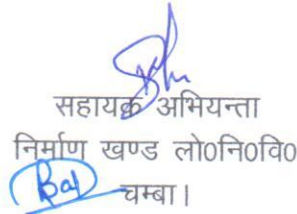 सहायक अभियन्ता
निर्माण खण्ड लो०नि०वि०
चम्बा।